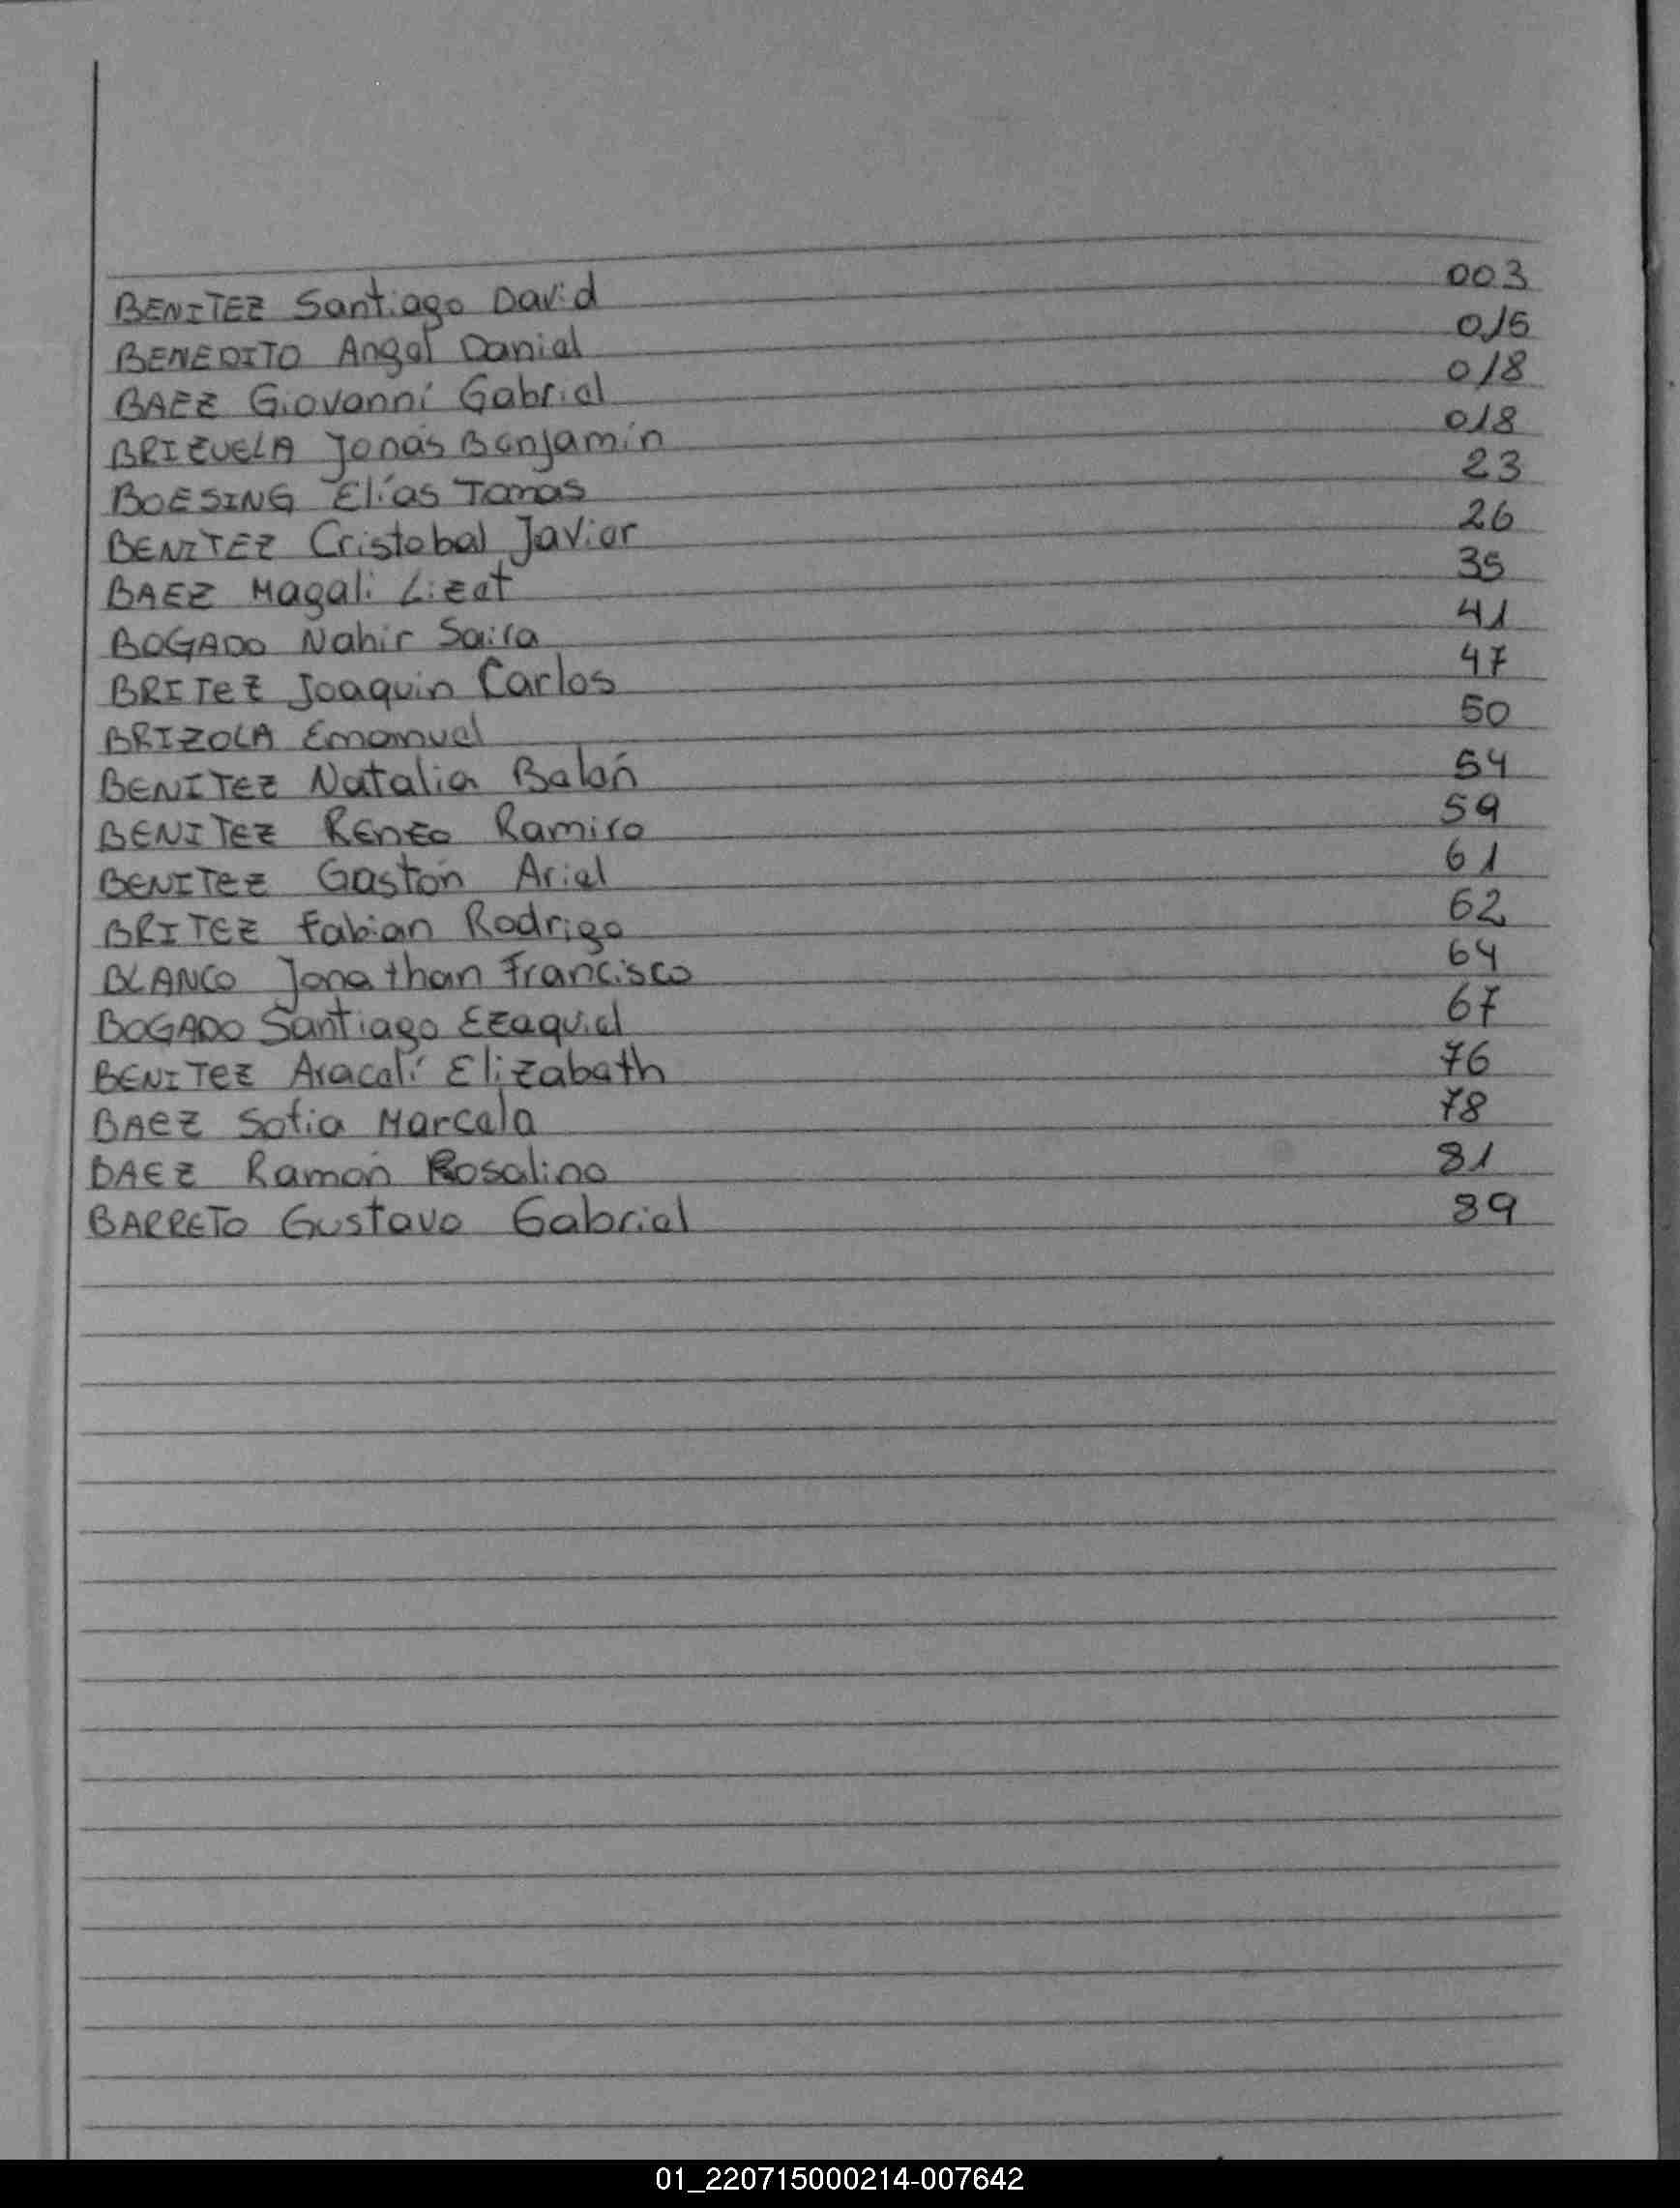 BENITEZ Santiago David 003
BENEDITO Angel Daniel 015
BAEZ Giovanni Gabriel 018
BRIZUELA Jonás Benjamín 018
BOESING Elías Tomas 23
BENITEZ Cristobal Javier 26
BAEZ Magali Lizet 35
BOGADO Nahir Saira 41
BRITEZ Joaquin Carlos 47
BRIZOLA Emanuel 50
BENITEZ Natalia Belén 54
BENITEZ Renzo Ramiro 59
BENITEZ Gastón Ariel 61
BRITEZ Fabian Rodrigo 62
BLANCO Jonathan Francisco 64
BOGADO Santiago Ezequiel 67
BENITEZ Araceli Elizabeth 76
BAEZ Sofia Marcela 78
BAEZ Ramón Rosalino 81
BARRETO Gustavo Gabriel 89
01_220715000214-007642